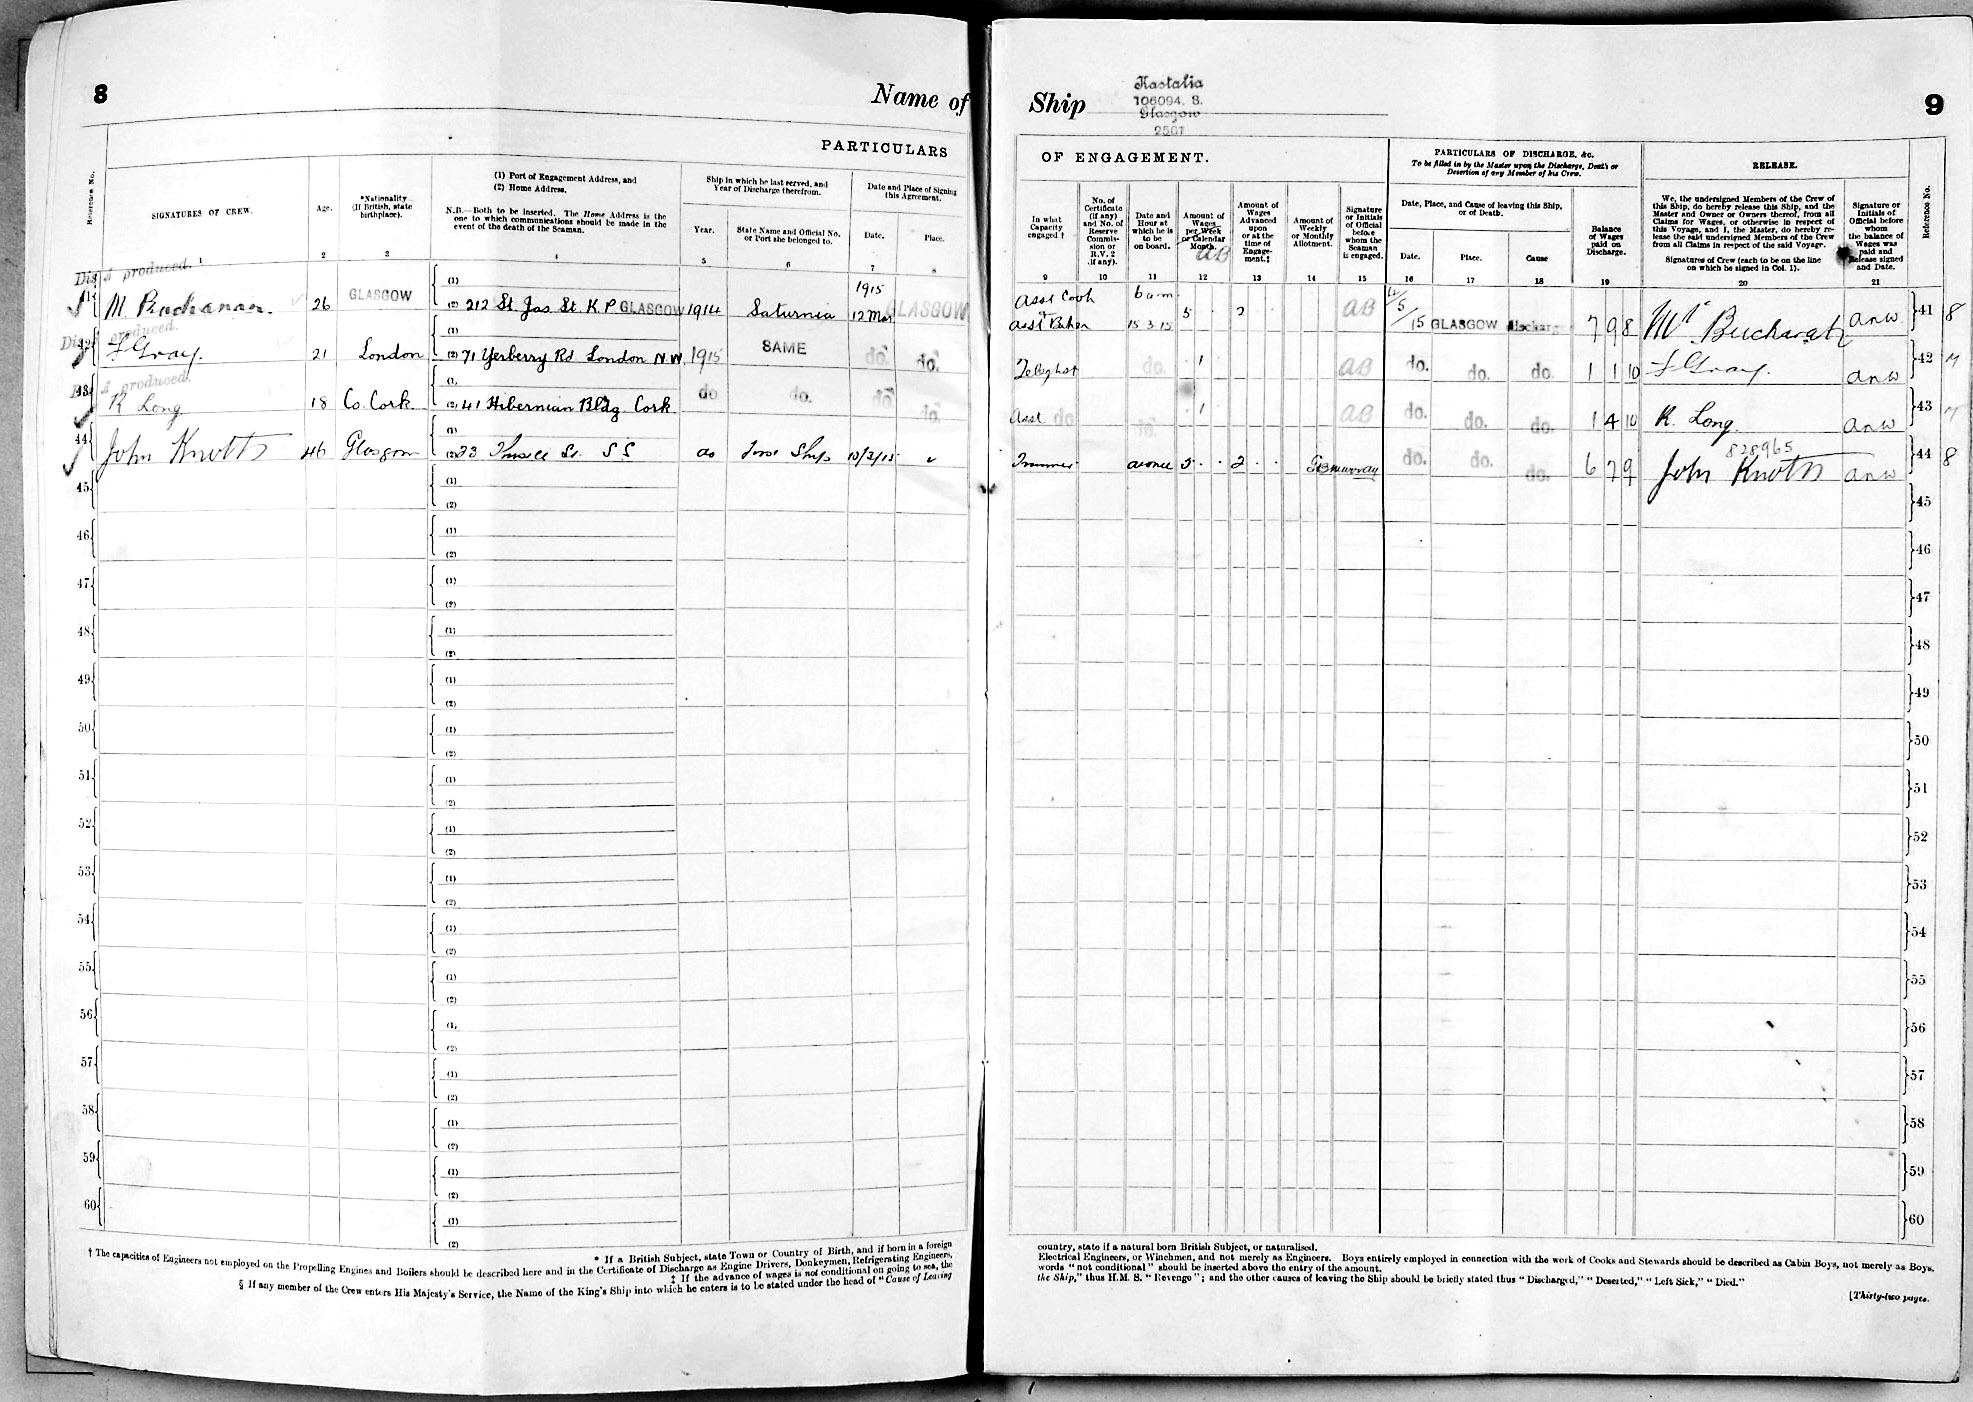 8
Name of
PARTICULARS
Reference No.
SIGNATURES OF CREW.
Age.
*Nationality
(If British, state
birthplace).
(1) Port of Engagement Address, and
(2) Home Address.
N.B.—Both to be inserted. The Home Address is the
one to which communications should be made in the
event of the death of the Seaman.
Ship in which he last served, and
Year of Discharge therefrom.
Year.
State Name and Official No.
or Port she belonged to.
Date and Place of Signing
this Agreement.
Date.
Place.
1 2 3 4 5 6 7 8
Dis. A produced.
41 M Buchanan. 26 GLASGOW (1) (2) 212 St Jas St. K.P GLASGOW 1914 Saturnia 1915 12 Mar GLASGOW
Dis. produced.
42 F Gray. 21 London (1) (2) 71 Yerberry Rd London N.W. 1915 SAME do. do.
produced.
43 K Long 18 Co. Cork (1) (2) 41 Hibernian Bldg Cork do do. do do.
44 John Knott 46 Glasgow (1) (2) 23 St. SS Ship
45 (1) (2)
46 (1) (2)
47 (1) (2)
48 (1) (2)
49 (1) (2)
50 (1) (2)
51 (1) (2)
52 (1) (2)
53 (1) (2)
54 (1) (2)
55 (1) (2)
56 (1) (2)
57 (1) (2)
58 (1) (2)
59 (1) (2)
60 (1) (2)
* If a British Subject, state Town or Country of Birth, and if born in a foreign
† The capacities of Engineers not employed on the Propelling Engines and Boilers should be described here and in the Certificate of Discharge as Engine Drivers, Donkeymen, Refrigerating Engineers,
‡ If the advance of wages is not conditional on going to sea, the
§ If any member of the Crew enters His Majesty's Service, the Name of the King's Ship into which he enters is to be stated under the head of "Cause of Leaving
Ship
Kastalia
106094. S.
Glasgow
2561
9
OF ENGAGEMENT.
PARTICULARS OF DISCHARGE, &c.
To be filled in by the Master upon the Discharge, Death or
Desertion of any Member of his Crew.
RELEASE.
In what
Capacity
engaged †
No. of
Certificate
(if any)
and No. of
Reserve
Commis-
sion or
R.V. 2
(if any).
Date and
Hour at
which he is
to be
on board.
Amount of
Wages
per Week
or Calendar
Month.
AB
Amount of
Wages
Advanced
upon
or at the
time of
Engage-
ment.‡
Amount of
Weekly
or Monthly
Allotment.
Signature
or Initials
of Official
before
whom the
Seaman
is engaged.
Date, Place, and Cause of leaving this Ship,
or of Death.
Date.
Place.
Cause
Balance
of Wages
paid on
Discharge.
We, the undersigned Members of the Crew of
this Ship, do hereby release this Ship, and the
Master and Owner or Owners thereof, from all
Claims for Wages, or otherwise in respect of
this Voyage, and I, the Master, do hereby re-
lease the said undersigned Members of the Crew
from all Claims in respect of the said Voyage.
Signatures of Crew (each to be on the line
on which he signed in Col. 1).
Signature or
Initials of
Official before
whom
the balance of
Wages was
paid and
Release signed
and Date.
Reference No.
9 10 11 12 13 14 15 16 17 18 19 20 21
Asst Cook & Asst Baker 6 am 15.3.15 5 2 AB 4/5/15 GLASGOW Discharge 7 9 8 Buchanan anw 41 8
do. 1 AB do. do. do. 1 1 10 F Gray. anw 42
Asst do do. 1 AB do. do. do. 1 4 10 K. Long. anw 43
828965
Trimmer at once 5 2 Murray do. do. do. 6 7 9 John Knott anw 44 8
45
46
47
48
49
50
51
52
53
54
55
56
57
58
59
60
country, state if a natural born British Subject, or naturalised.
Electrical Engineers, or Winchmen, and not merely as Engineers. Boys entirely employed in connection with the work of Cooks and Stewards should be described as Cabin Boys, not merely as Boys.
words "not conditional" should be inserted above the entry of the amount.
the Ship," thus H.M.S. "Revenge"; and the other causes of leaving the Ship should be briefly stated thus "Discharged," "Deserted," "Left Sick," "Died."
[Thirty-two pages.